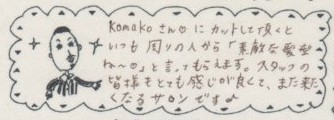 Komakoさん☺にカットして頂くと
いつも周りの人から「素敵な髪型
ね〜☺」と言ってもらえます。スタッフの
皆様もとても感じが良くて、また来た
くなるサロンです♪